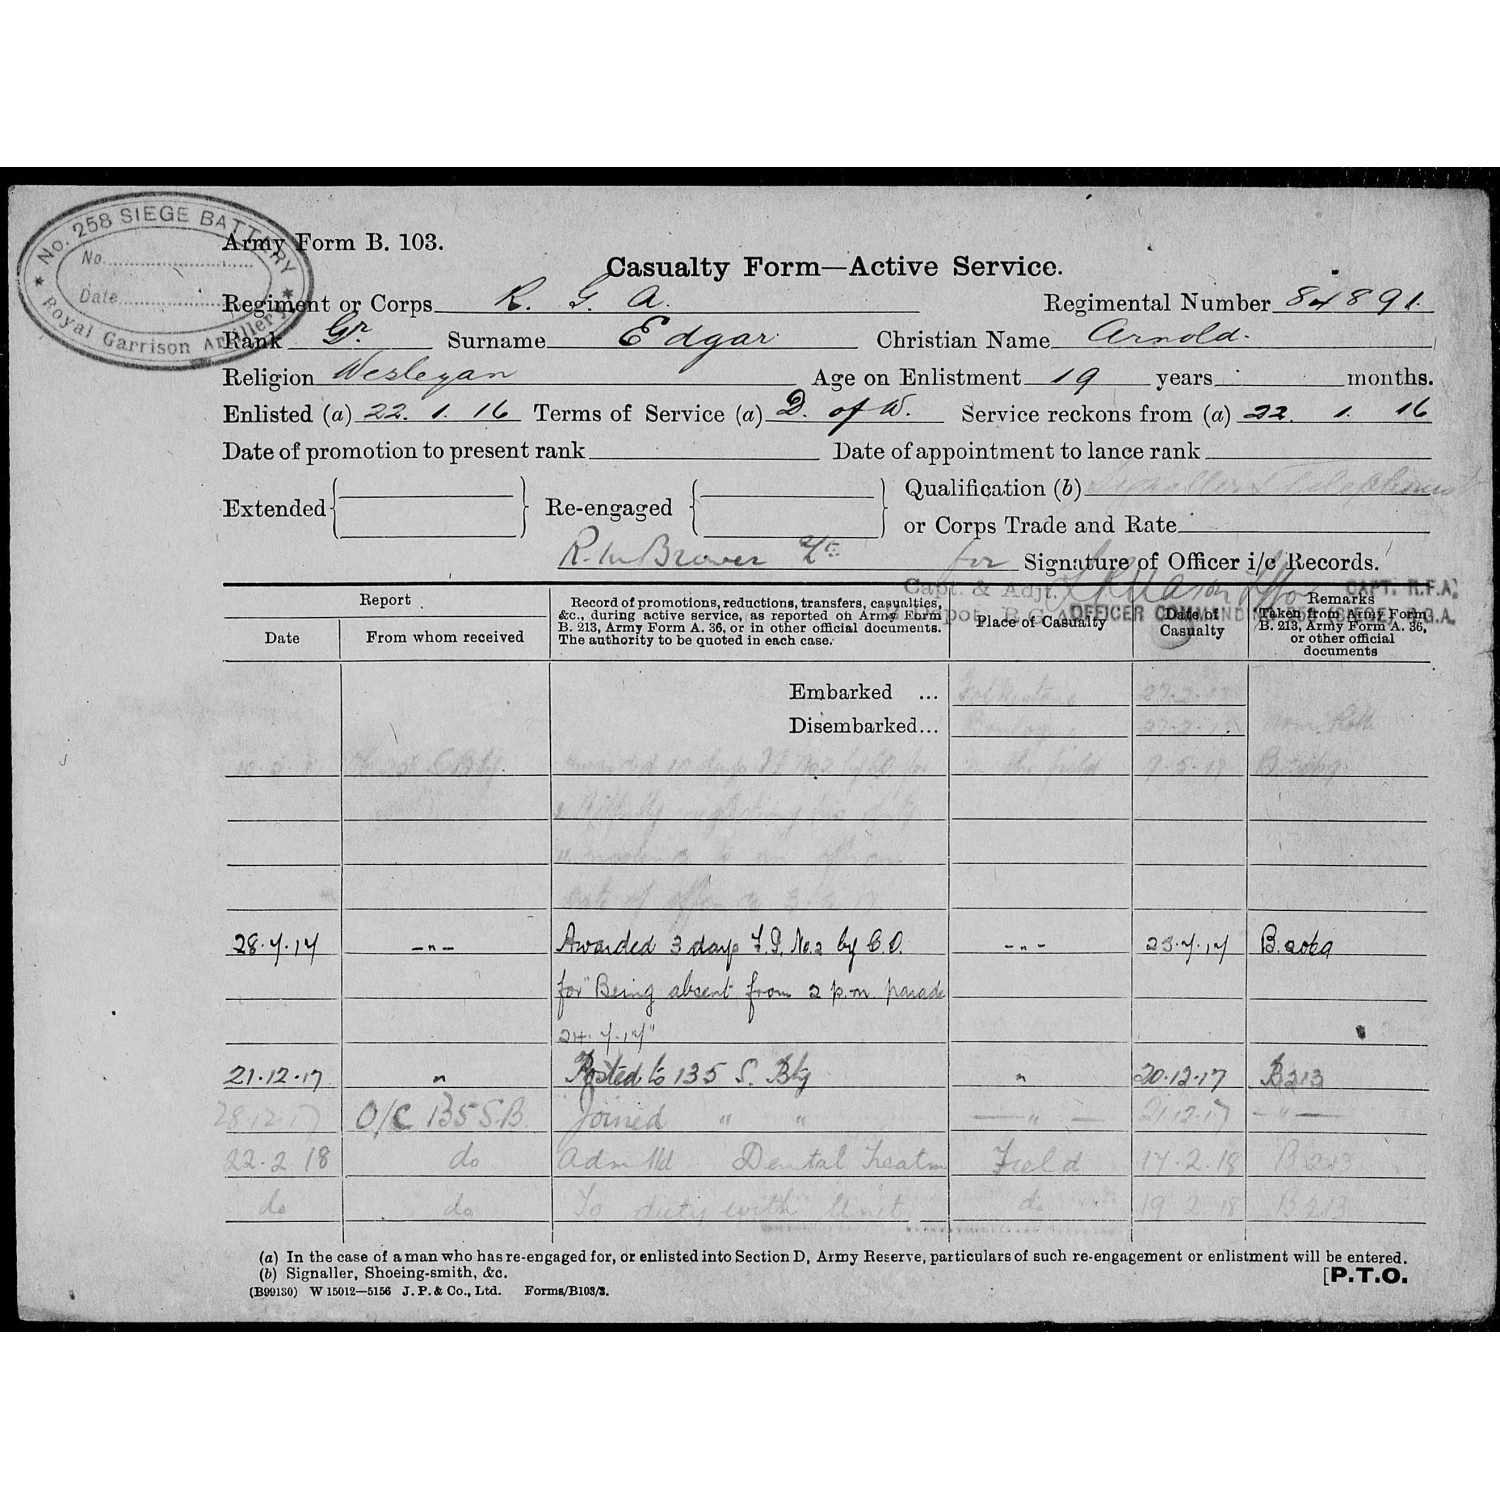 No. 258 SIEGE BATTERY
No.
Date
Royal Garrison Artillery
Army Form B. 103.
Casualty Form—Active Service.
Regiment or Corps R. G. A. Regimental Number 84891.
Rank Gr. Surname Edgar Christian Name Arnold.
Religion Wesleyan Age on Enlistment 19 years months.
Enlisted (a) 22. 1. 16 Terms of Service (a) D. of W. Service reckons from (a) 22. 1. 16
Date of promotion to present rank Date of appointment to lance rank
Extended Re-engaged Qualification (b) Signaller & Telephonist
or Corps Trade and Rate
for Signature of Officer i/c Records.
Capt. & Adjt. CAPT. R.F.A.
OFFICER COMMANDING 258 (SIEGE) R.G.A.
Report
Date From whom received
Record of promotions, reductions, transfers, casualties, &c., during active service, as reported on Army Form B. 213, Army Form A. 36, or in other official documents. The authority to be quoted in each case.
Place of Casualty
Date of Casualty
Remarks Taken from Army Form B. 213, Army Form A. 36, or other official documents
Embarked ... Folkestone 27.2.17
Disembarked... Boulogne 27.2.17
Awarded 10 days F.P. No 2 by in the field 9.5.17
Date of offence
28.7.17 -"- Awarded 3 days F.P. No. 2 by C.O. -"- 25.7.17 B.2069
for "Being absent from 2 p.m. parade
24.7.17"
21.12.17 " Posted to 135 S. Bty " 20.12.17 B213
28.12.17 O/C 135 S.B. Joined " " — " — 21.12.17 — " —
22.2.18 do Admttd Dental Treatm Field 17.2.18 B213
do do To duty with Unit do 19 2 18 B213
(a) In the case of a man who has re-engaged for, or enlisted into Section D, Army Reserve, particulars of such re-engagement or enlistment will be entered.
(b) Signaller, Shoeing-smith, &c.
[P.T.O.
(B99130) W 15012—5156 J. P. & Co., Ltd. Forms/B103/3.